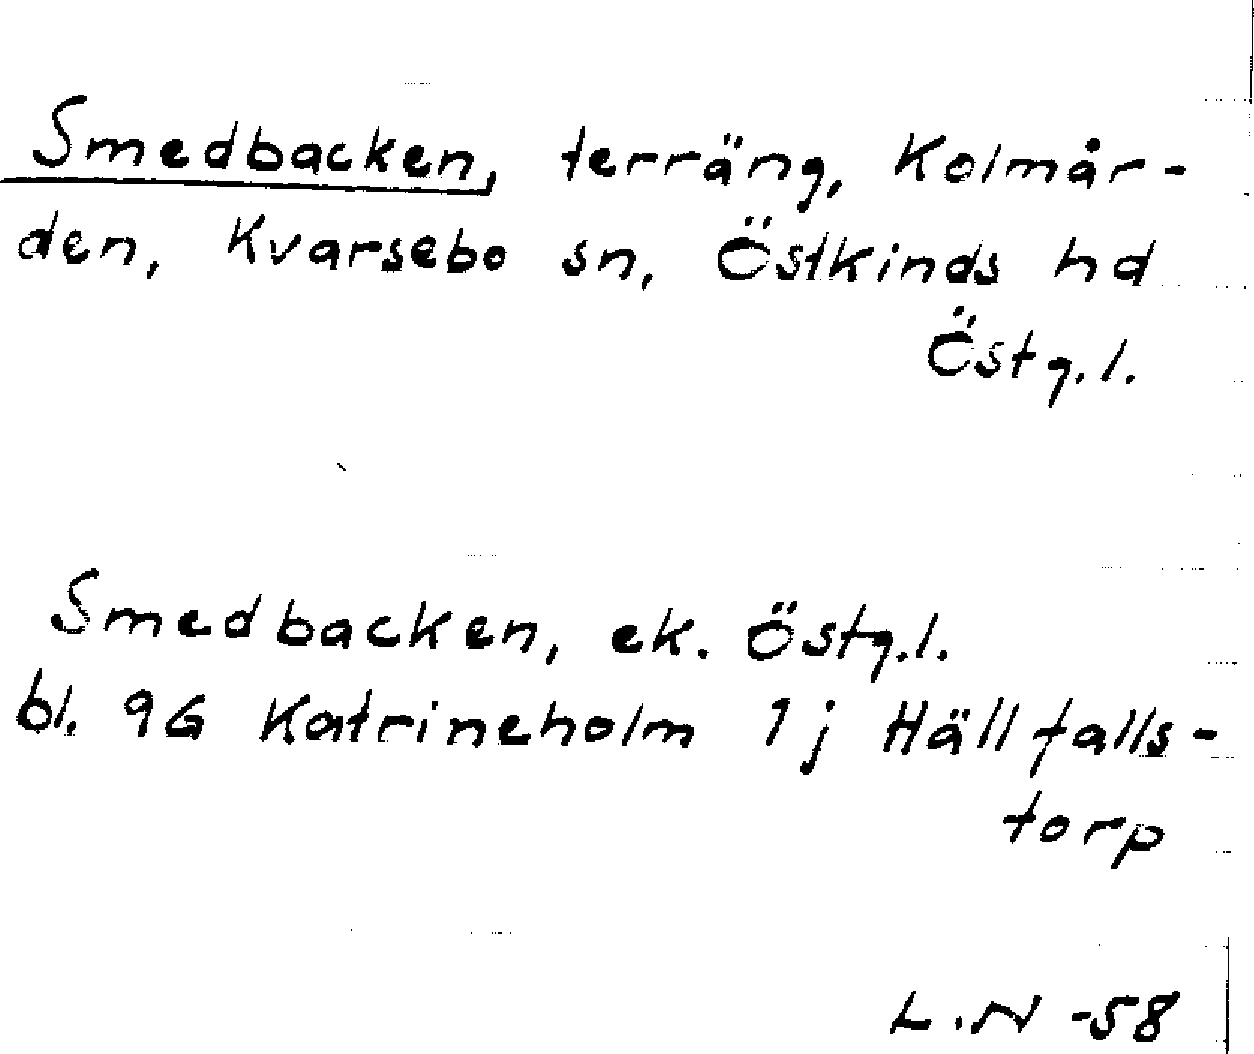 Smedbacken, terräng, Kolmår-
den, Kvarsebo sn, Östkinds hd
Östg.l.
Smedbacken, ek. Östg.l.
bl. 9G Katrineholm 1j Hällfalls-
torp
L.N -58